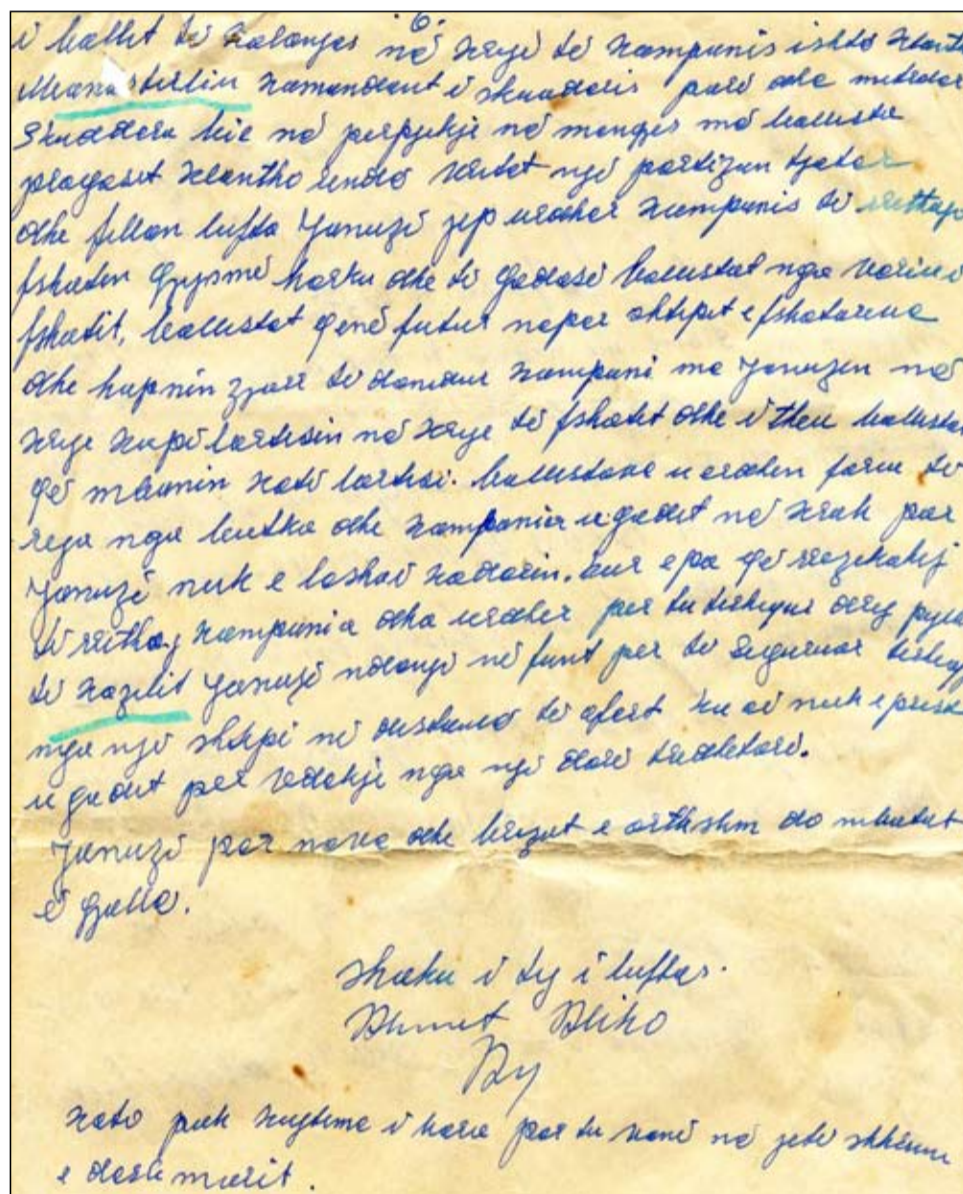 6.
i ballit të Kolonjes në krye të kompanis ishte
komandant i skuadris pare dhe
Skuadera bie në perpjekje në menges me balliste
plagoset rendë vritet një partizan tjeter
dhe fillon lufta Januzi jep urdher kompanis të rrethoje
fshatin gjysmë harku dhe të godasi ballistat nga veriu i
fshatit, ballistat qenë futur neper shtepit e fshatareve
dhe hapnin zjarr të kompani me Januzin në
krye kapi lartesin në krye të fshatit dhe i theu
që mbanin katë lartesi. ballistave u erdhen forca të
reja nga dhe kompania u godit në krah por
Januzi nuk e leshoi kur e pa që rrezikohej
të rrethoj kompania dha urdher per tu terhequr drejt
të Januzi ndenji në funt per të siguruar
nga një shtepi në distancë të afert ku ai nuk e priste
u godit per vdekje nga një dorë tradhetari.
Januzi per neve dhe brezat e ardhshm do mbetet
i gjalle.
shoku i ty i luftes.
Ahmet Aliko
Keto pak kujtime i kera per tu venë në jetë
e deshmorit.